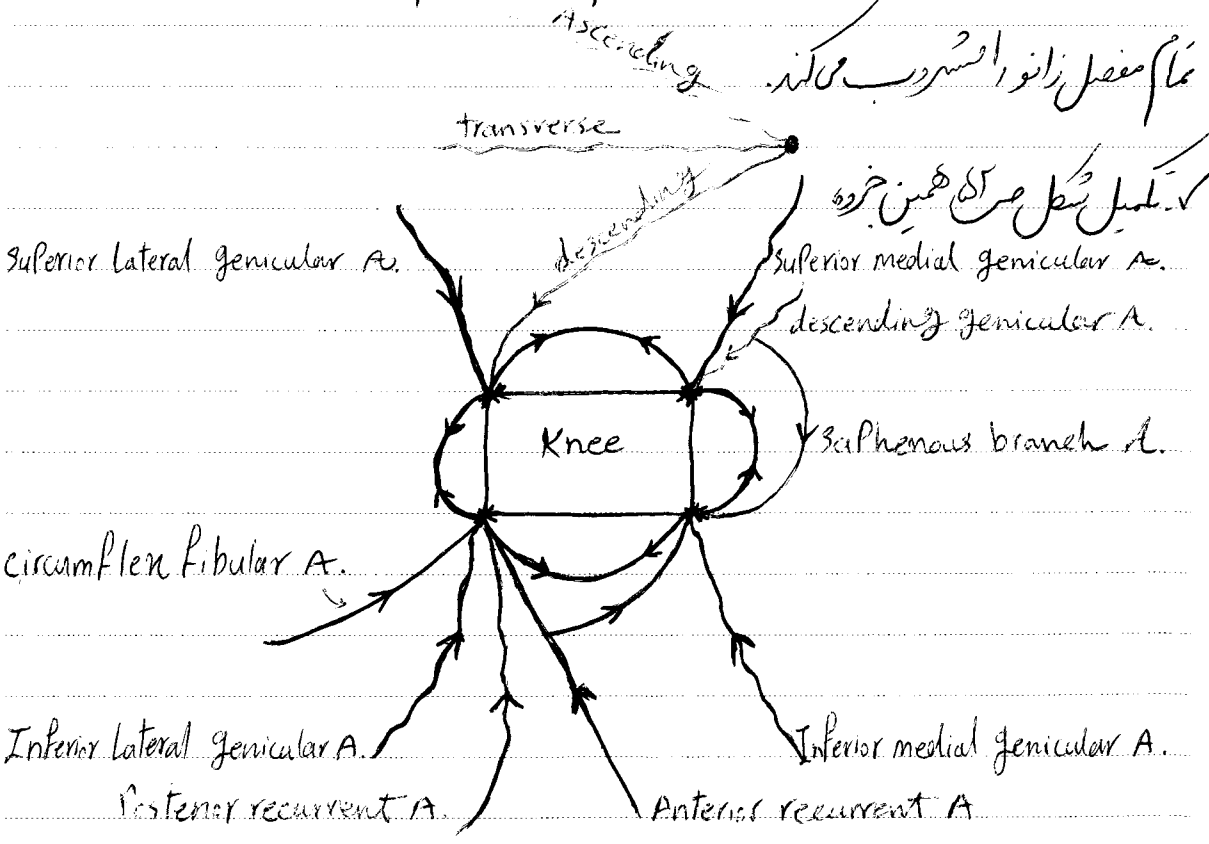 Ascending
تمام مفصل زانو را مشروب می‌کند.
transverse
descending
تکمیل شکل همین جزوه
Superior Lateral genicular A.
Superior medial genicular A.
descending genicular A.
Knee
Saphenous branch A.
circumflex fibular A.
Inferior Lateral genicular A.
Inferior medial genicular A.
Posterior recurrent A.
Anterior recurrent A